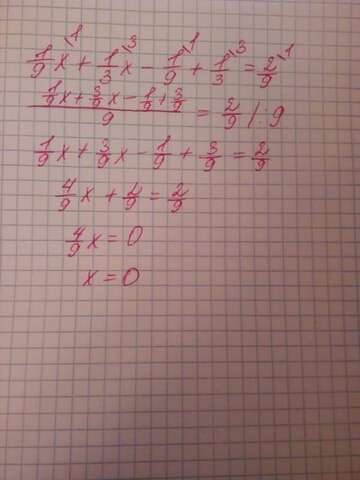 1/9 x\1 + 1/3 x\3 − 1/9\1 + 1/3\3 = 2/9\1
(1/9 x + 3/9 x − 1/9 + 3/9)/9 = 2/9 | : 9
1/9 x + 3/9 x − 1/9 + 3/9 = 2/9
4/9 x + 2/9 = 2/9
4/9 x = 0
x = 0